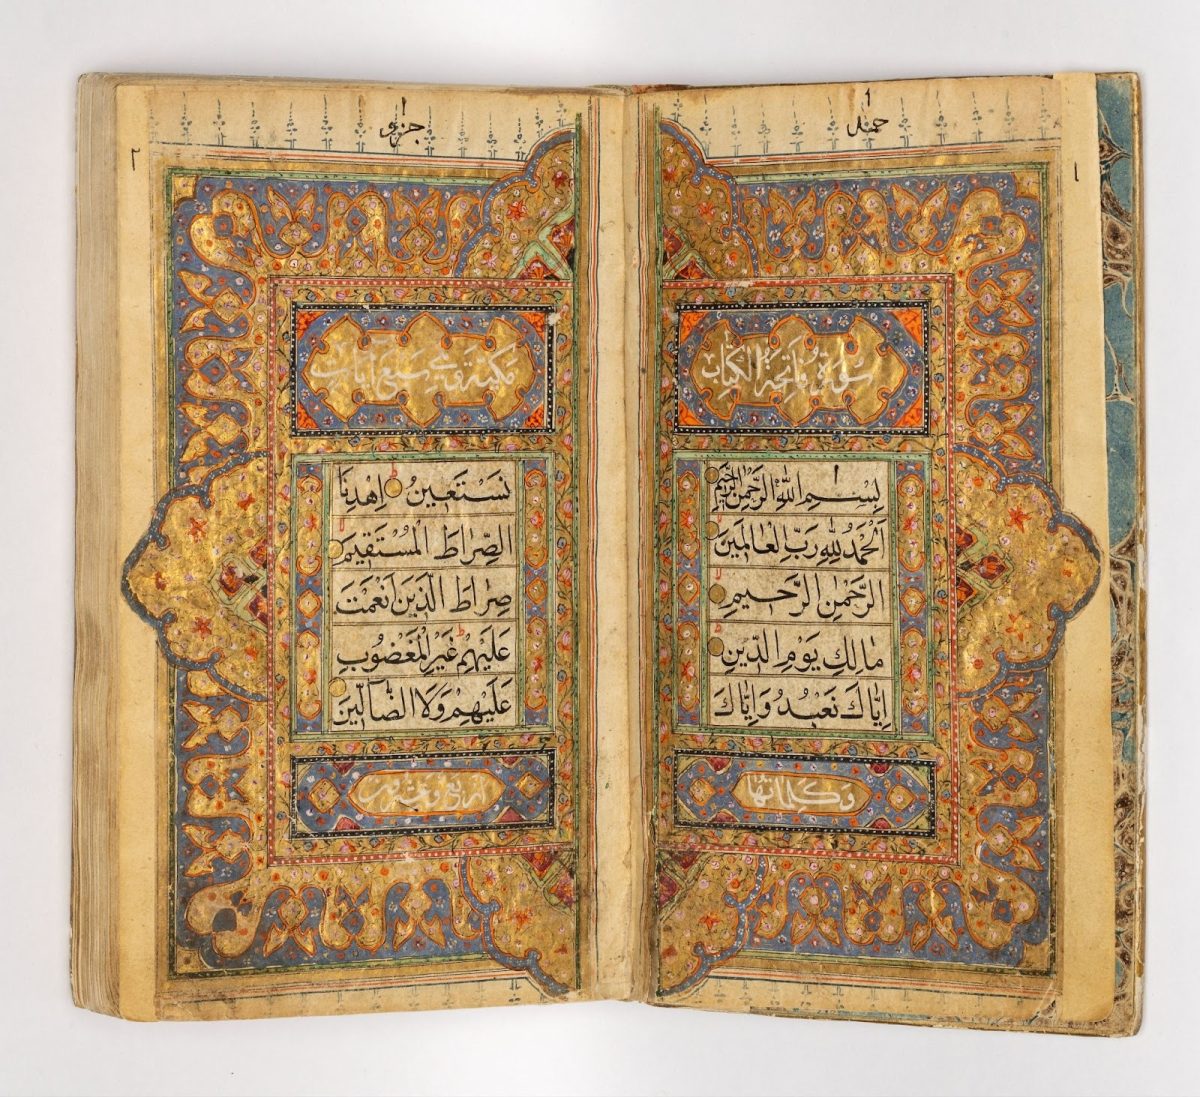 ١
حمد
١
سورة فاتحة الكتاب
بِسْمِ اللّٰهِ الرَّحْمٰنِ الرَّحِيمِ
اَلْحَمْدُ لِلّٰهِ رَبِّ الْعَالَمِينَ
الرَّحْمٰنِ الرَّحِيمِ
مَالِكِ يَوْمِ الدِّينِ
اِيَّاكَ نَعْبُدُ وَاِيَّاكَ
وكلماتها
١
جزو
٢
مكية وهي سبع آيات
نَسْتَعِينُ اِهْدِنَا
الصِّرَاطَ الْمُسْتَقِيمَ
صِرَاطَ الَّذِينَ اَنْعَمْتَ
عَلَيْهِمْ غَيْرِ الْمَغْضُوبِ
عَلَيْهِمْ وَلَا الضَّالِّينَ
اربع